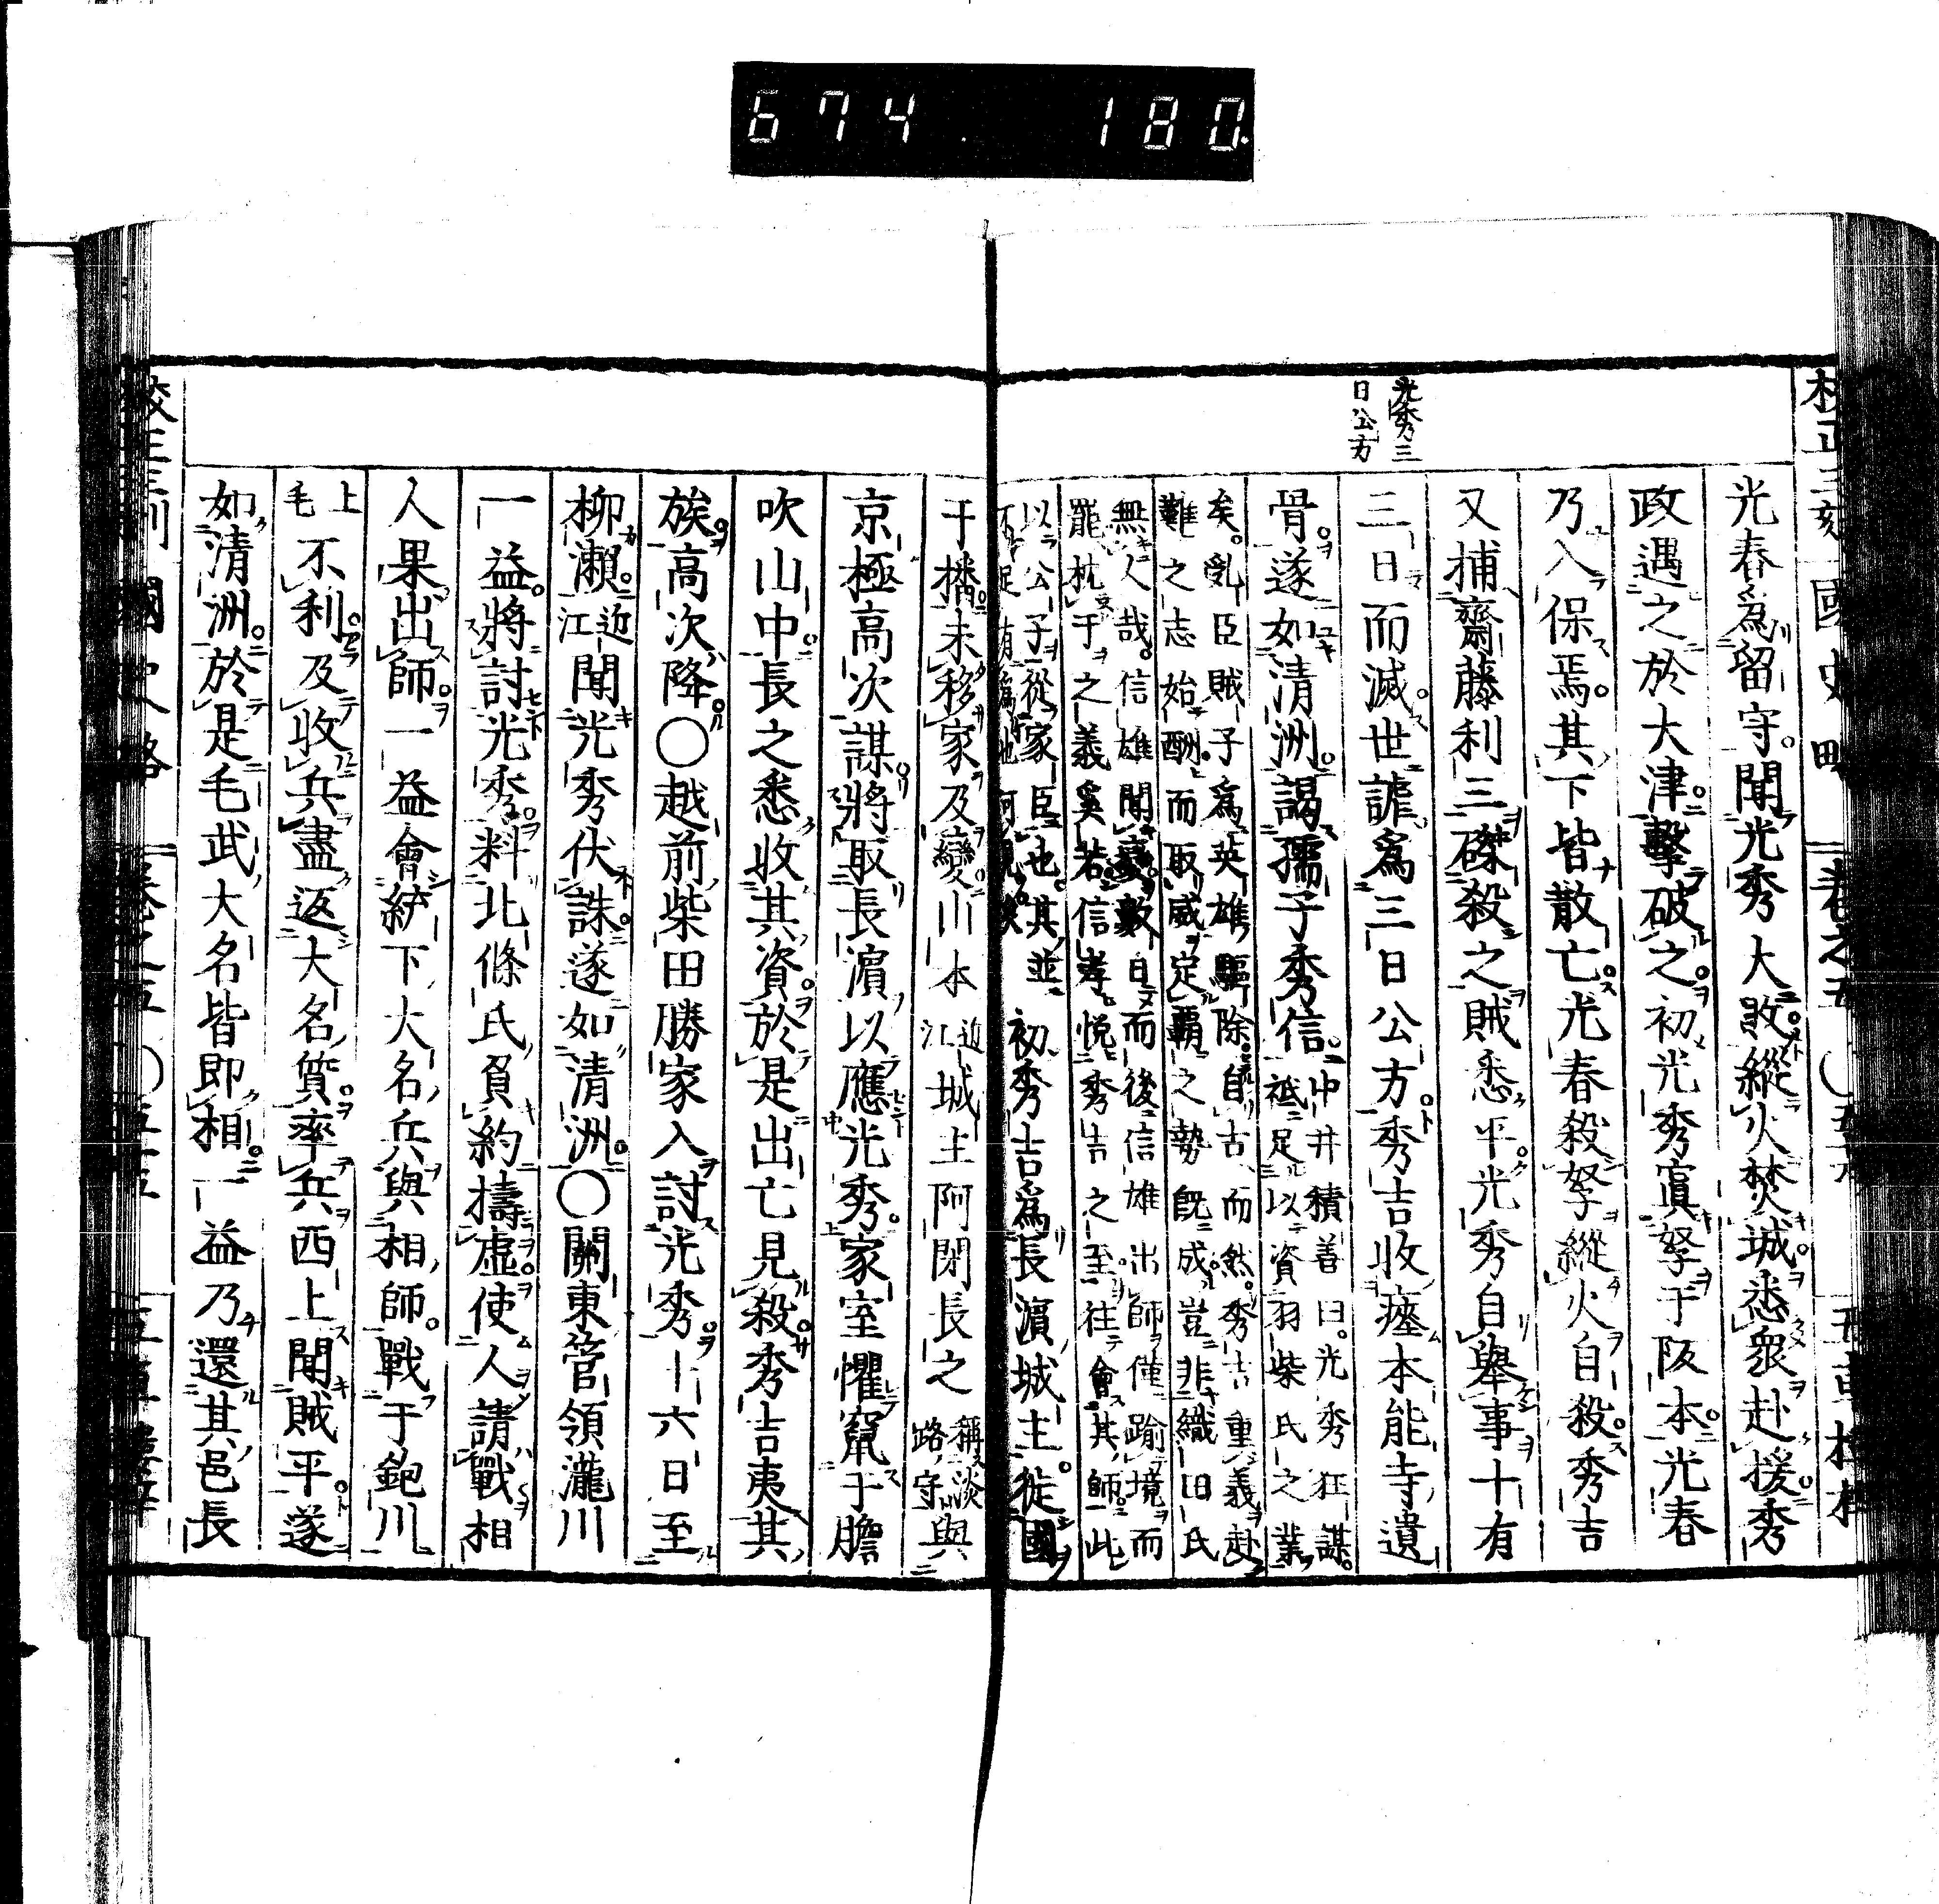 674. 180.
光秀三
日公方
光春爲留守聞光秀大敗縱火焚城悉衆赴援秀
政遇之於大津擊破之初光秀寘孥于阪本光春
乃入保焉其下皆散亡光春殺孥縱火自殺秀吉
又捕齋藤利三磔殺之賊悉平光秀自舉事十有
三日而滅世謔爲三日公方秀吉收瘞本能寺遺
骨遂如清洲謁孺子秀信
中井積善曰光秀狂謀
祗足以資羽柴氏之業
矣亂臣賊子爲英雄驅除自古而然秀吉重義赴
難之志始酬而取威定覇之勢既成豈非織田氏
無人哉信雄聞變數日而後信雄出師僅踰境而
罷枕于之義奚若信孝悅秀吉之至往會其師此
以公子從家臣也其並
初秀吉爲長濱城主徙國
于播未移家及變山本
近
江
城主阿閉長之
稱淡
路守
與
京極高次謀將取長濱以應光秀家室懼竄于膽
吹山中長之悉收其資於是出亡見殺秀吉夷其
族高次降〇越前柴田勝家入討光秀十六日至
柳瀨
近
江
聞光秀伏誅遂如清洲〇關東管領瀧川
一益將討光秀料北條氏負約擣虛使人請戰相
人果出師一益會統下大名兵與相師戰于鉋川
上
毛
不利及收兵盡返大名質率兵西上聞賊平遂
如清洲於是毛武大名皆即相一益乃還其邑長